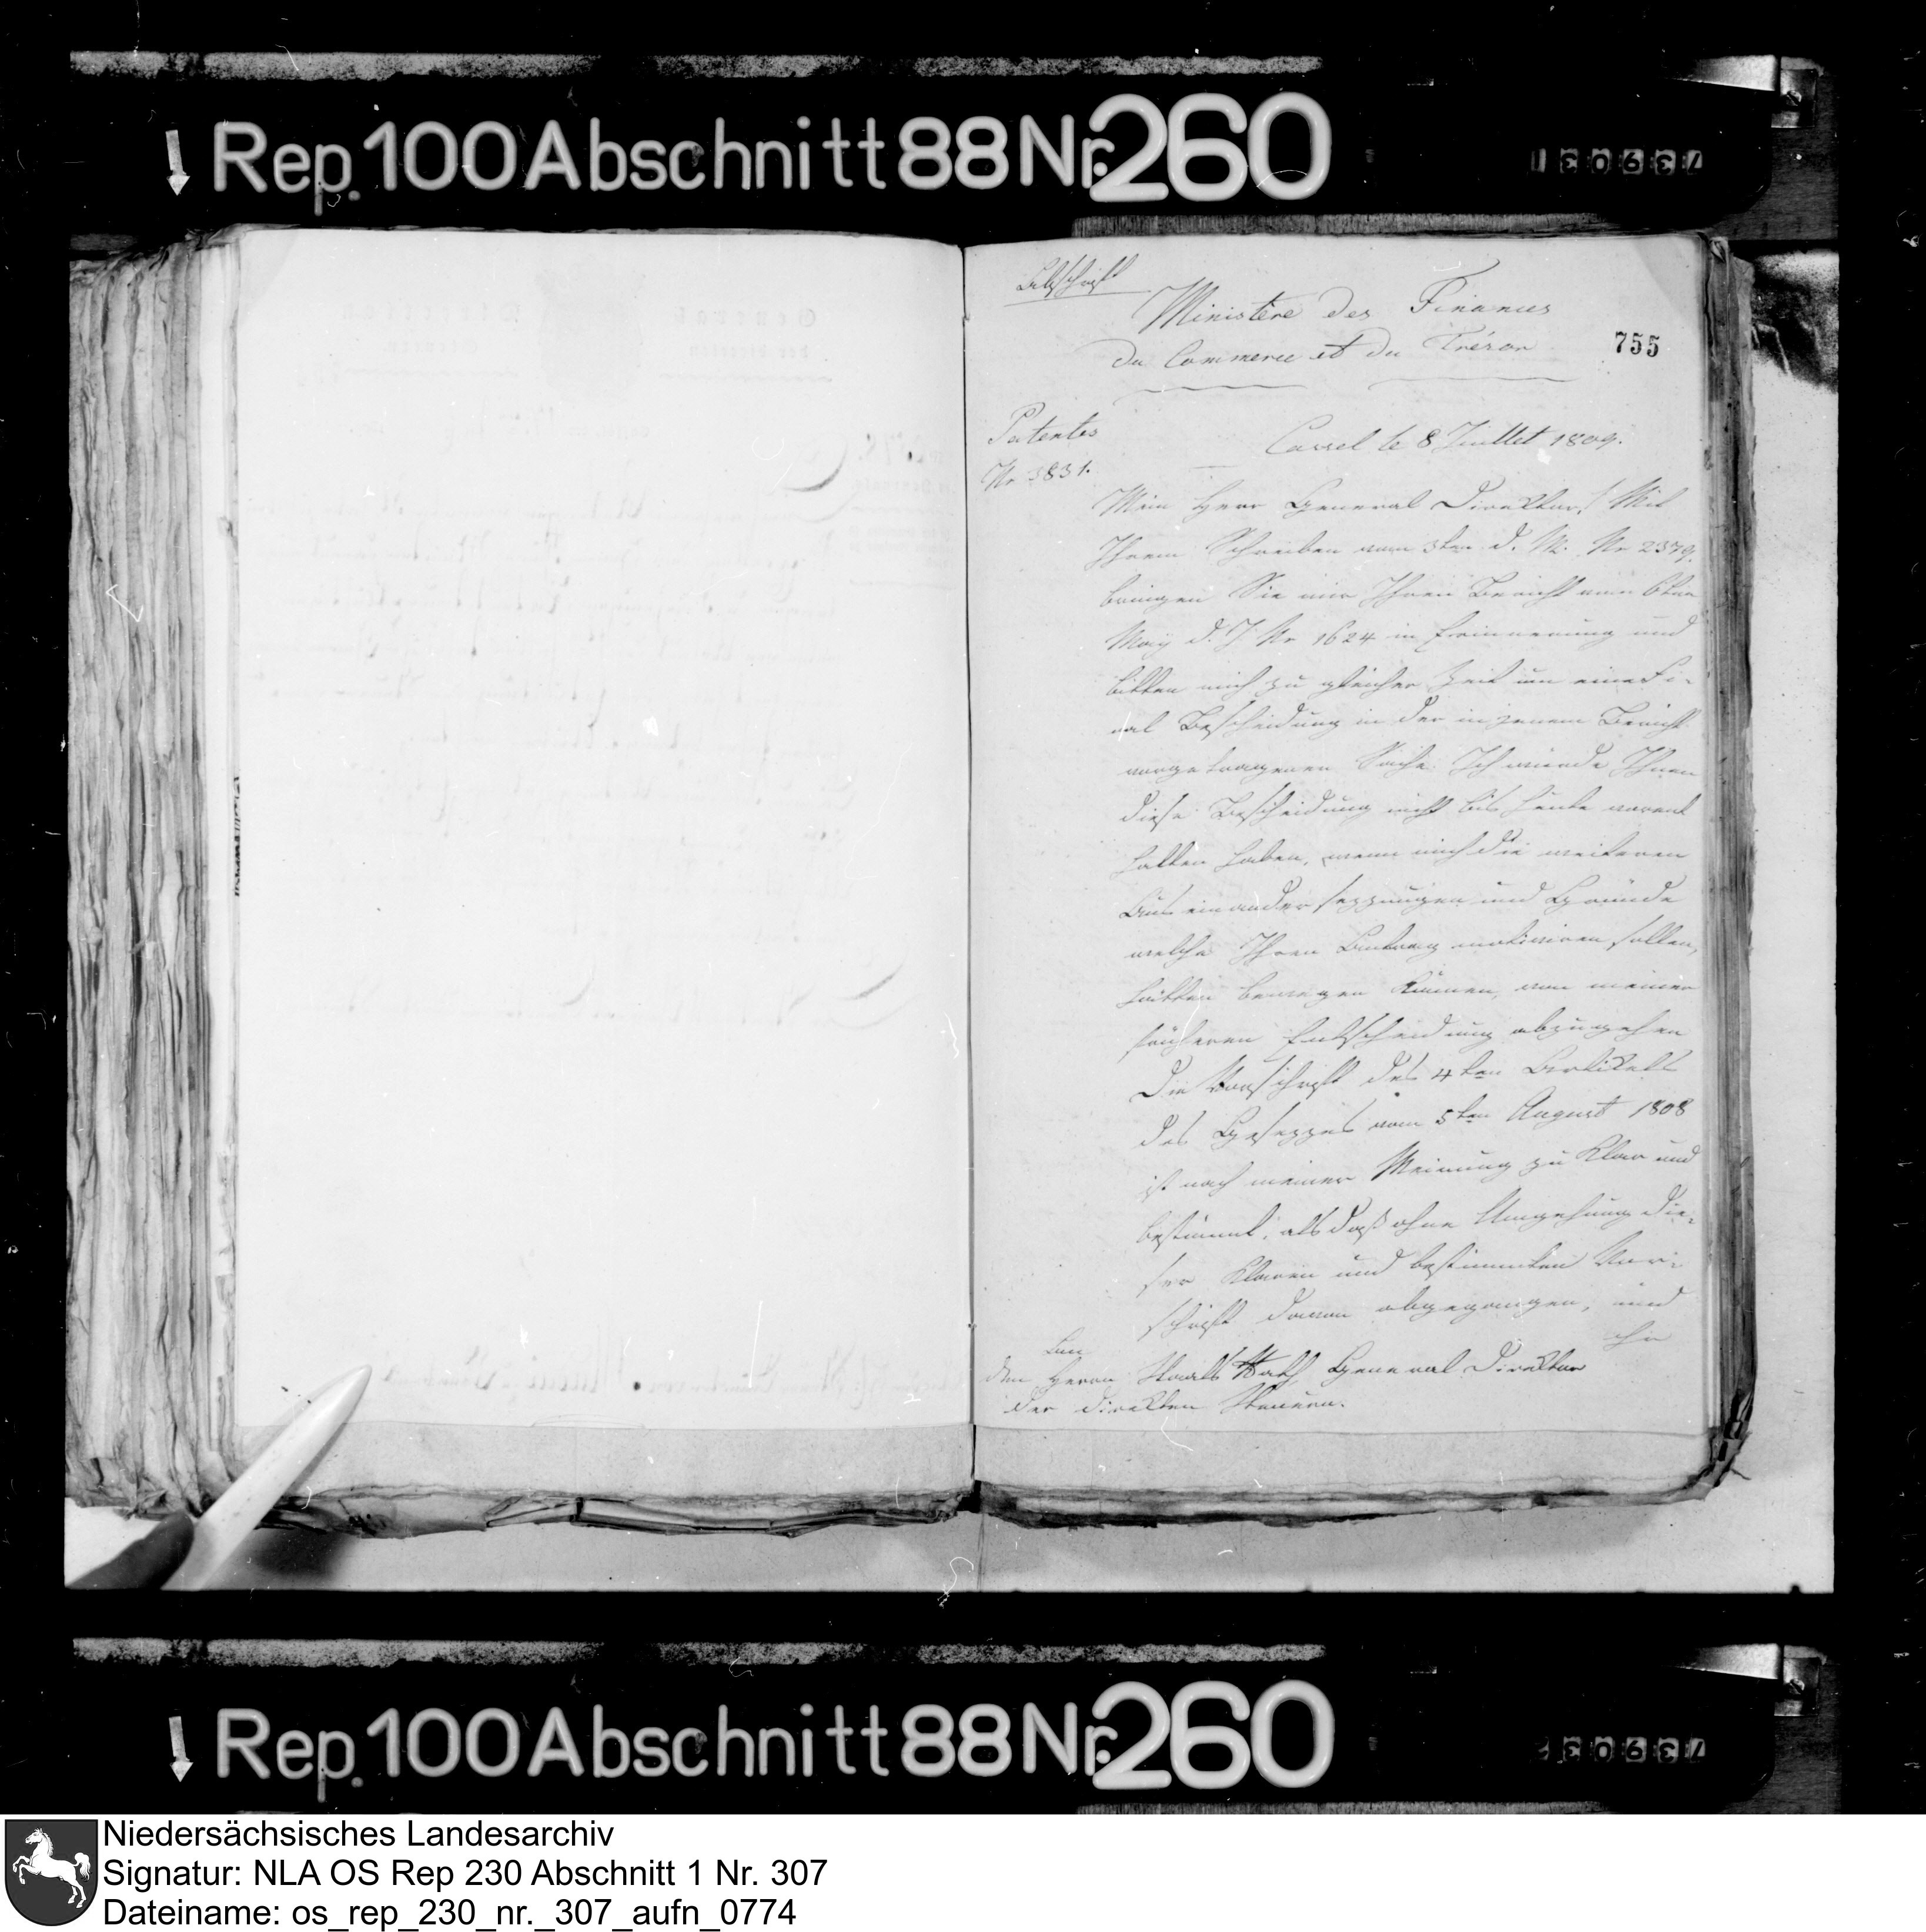 Rep. 100 Abschnitt 88 Nr. 260
Abschrift
Ministère des Finances
du Commerce et du Trésor
755
Patentes
Nr 3831.
Cassel le 8 Juillet 1809.
Mein Herr General Direktor! Mit
Ihrem Schreiben vom 3ten d. M. Nr 2379.
bringen Sie mir Ihren Bericht vom 6ten
May d. J. Nr 1624 in Erinnerung und
bitten mich zu gleicher Zeit um eine Fi-
nal Bescheidung in der in jenem Bericht
vorgetragenen Sache. Ich würde Ihnen
diese Bescheidung nicht bis heute vorent
halten haben, wenn mich die weiteren
Auseinandersezzungen und Gründe
welche Ihren Antrag motiviren sollen,
hätten bewegen können, von meiner
früheren Entscheidung abzugehen
Die Vorschrift des 4ten Artikels
des Gesezzes vom 5ten August 1808
ist nach meiner Meinung zu klar und
bestimmt, als daß ohne Umgehung die-
ser klaren und bestimmten Vor-
schrift davon abgegangen, und
An
den Herrn Staats Rath General Direktor
der direkten Steuern.
Rep. 100 Abschnitt 88 Nr. 260
Niedersächsisches Landesarchiv
Signatur: NLA OS Rep 230 Abschnitt 1 Nr. 307
Dateiname: os_rep_230_nr._307_aufn_0774